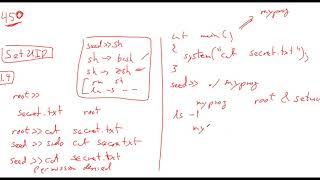 450
SetUID
1.9
seed>>sh
sh → bash
sh → zsh
rm sh
ln -s --
root>>
secret.txt root
root>>cat secret.txt
seed>>sudo cat secret.txt
seed>>cat secret.txt
permission denied
myprog
int main()
{
system("cat secret.txt");
}
seed>> ./myprog
myprog root & setuid
ls -l
my